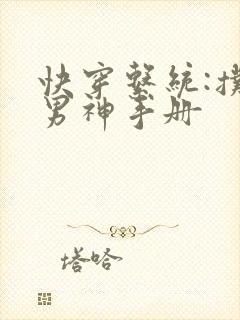 快穿繫統:
男神手册
塔哈